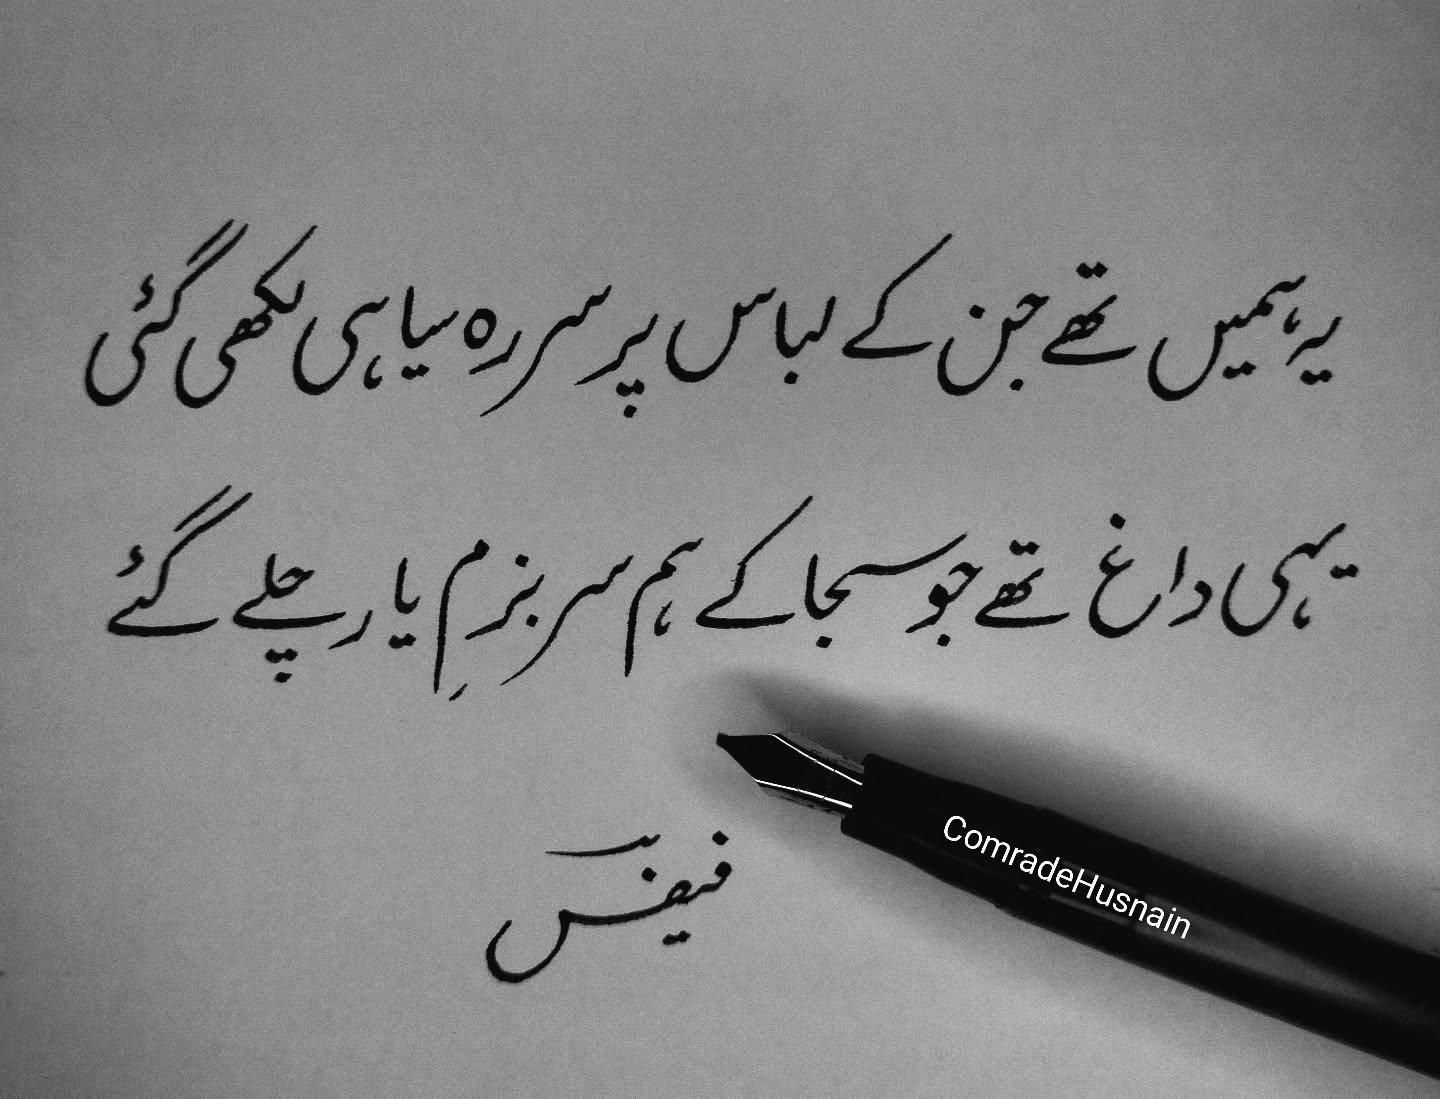 یہ ہمیں تھے جن کے لباس پر سر رہ سیاہی لکھی گئی
یہی داغ تھے جو سجا کے ہم سر بزمِ یار چلے گئے
فیض
ComradeHusnain